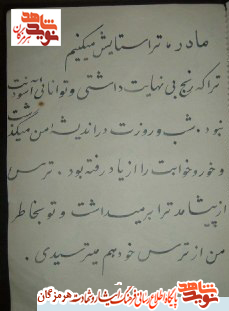 نوید شاهد
هرمزگان
مادر، ترا ستایش میکنیم
ترا که رنج بی نهایت داشتی و توانائی آسودنت
نبود. شب و روزت در اندیشه من میگذشت
و خور و خوابت را از یاد رفته بود. ترس
از پیشامد ترا بر میداشت و تو بخاطر
من از ترس خود هم میترسیدی.
پایگاه اطلاع رسانی فرهنگ ایثار و شهادت هرمزگان
نوید شاهد